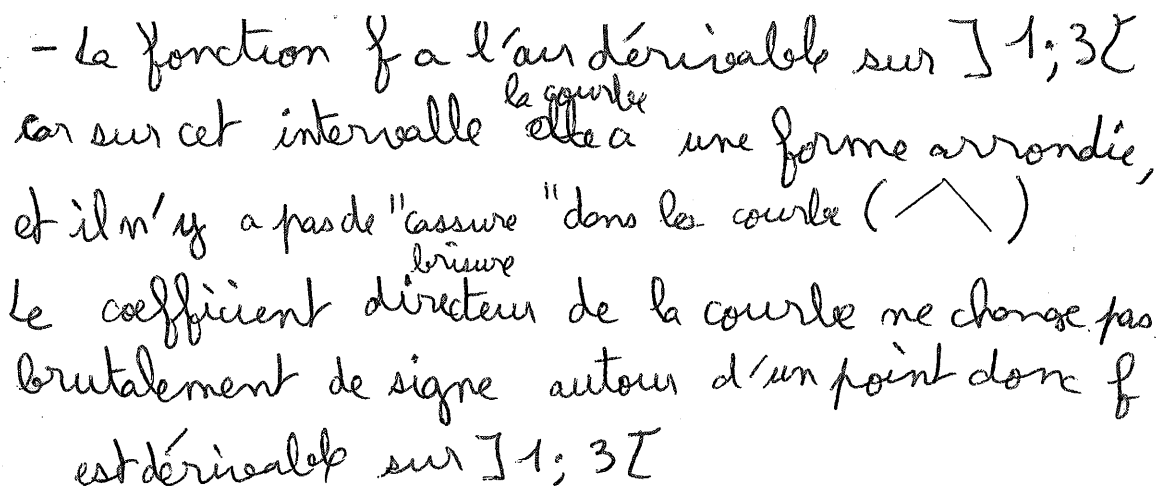 - La fonction f a l'air dérivable sur ]1;3[
la courbe
car sur cet intervalle elle a une forme arrondie,
et il n'y a pas de "cassure" dans la courbe ( )
brisure
Le coefficient directeur de la courbe ne change pas
brutalement de signe autour d'un point donc f
est dérivable sur ]1;3[